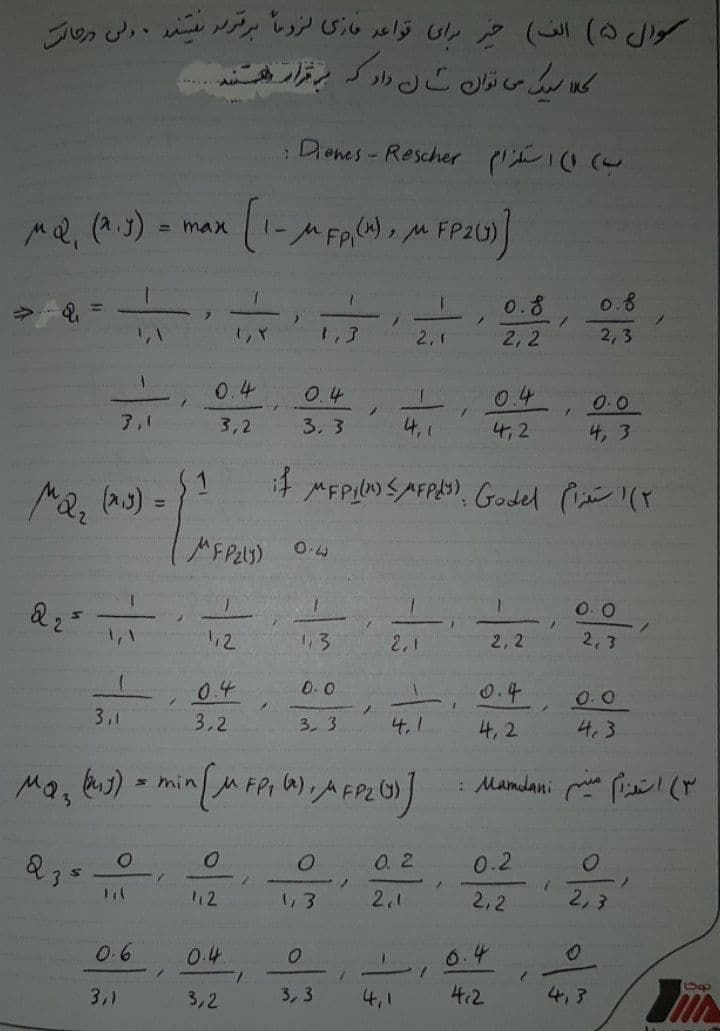 سوال ۵) الف) خیر برای قواعد فازی لزوماً برقرار نیستند. ولی در حالت
کلاسیک می توان نشان داد که برقرار هستند
ب) ۱) استلزام Dienes-Rescher :
μQ₁(x,y) = max [1-μFP₁(x), μFP2(y)]
⇒ Q₁ = 1/1,1 , 1/1,2 , 1/1,3 , 1/2,1 , 0.8/2,2 , 0.8/2,3 ,
1/3,1 , 0.4/3,2 , 0.4/3.3 , 1/4,1 , 0.4/4,2 , 0.0/4,3
۲) استلزام Godel : μQ₂(x,y) = { 1 if μFP1(x) ≤ μFP2(y)
μFP2(y) o.w
Q₂ = 1/1,1 , 1/1,2 , 1/1,3 , 1/2,1 , 1/2,2 , 0.0/2,3 ,
1/3,1 , 0.4/3,2 , 0.0/3,3 , 1/4,1 , 0.4/4,2 , 0.0/4,3
۳) استلزام مینیمم Mamdani : μQ₃(x,y) = min[μFP₁(x), μFP2(y)]
Q₃ = 0/1,1 , 0/1,2 , 0/1,3 , 0.2/2,1 , 0.2/2,2 , 0/2,3 ,
0.6/3,1 , 0.4/3,2 , 0/3,3 , 1/4,1 , 0.4/4,2 , 0/4,3